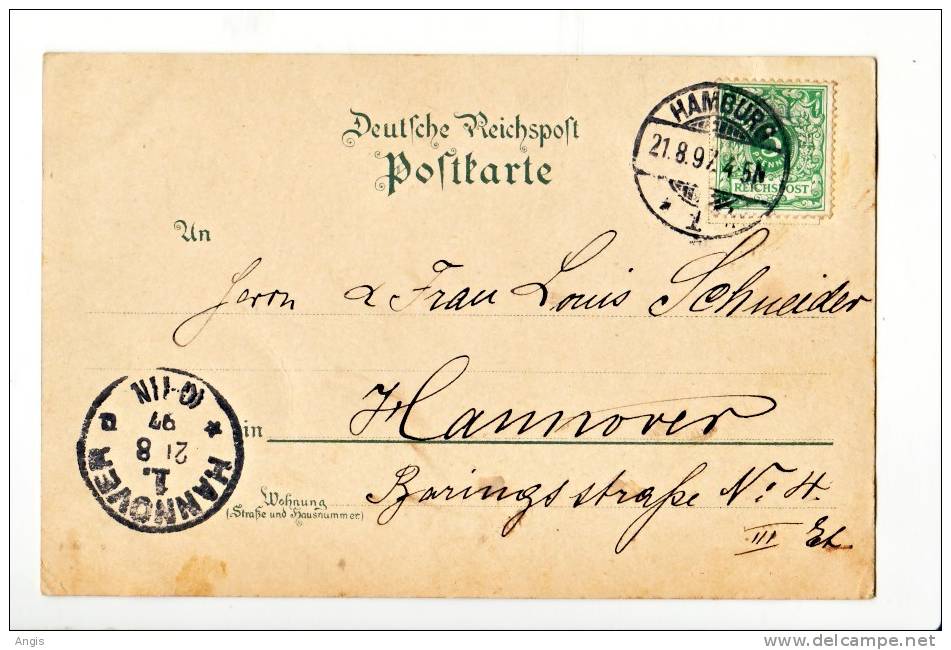 Deutsche Reichspost
Postkarte
HAMBURG
21.8.97. 4-5N
1.
REICHSPOST
An
Herrn & Frau Louis Schneider
in Hannover
Wohnung
(Straße und Hausnummer)
Baringsstraße No. 4.
III Et.
HANNOVER
1.
21 8
97
10-11N
Angis
www.delcampe.net